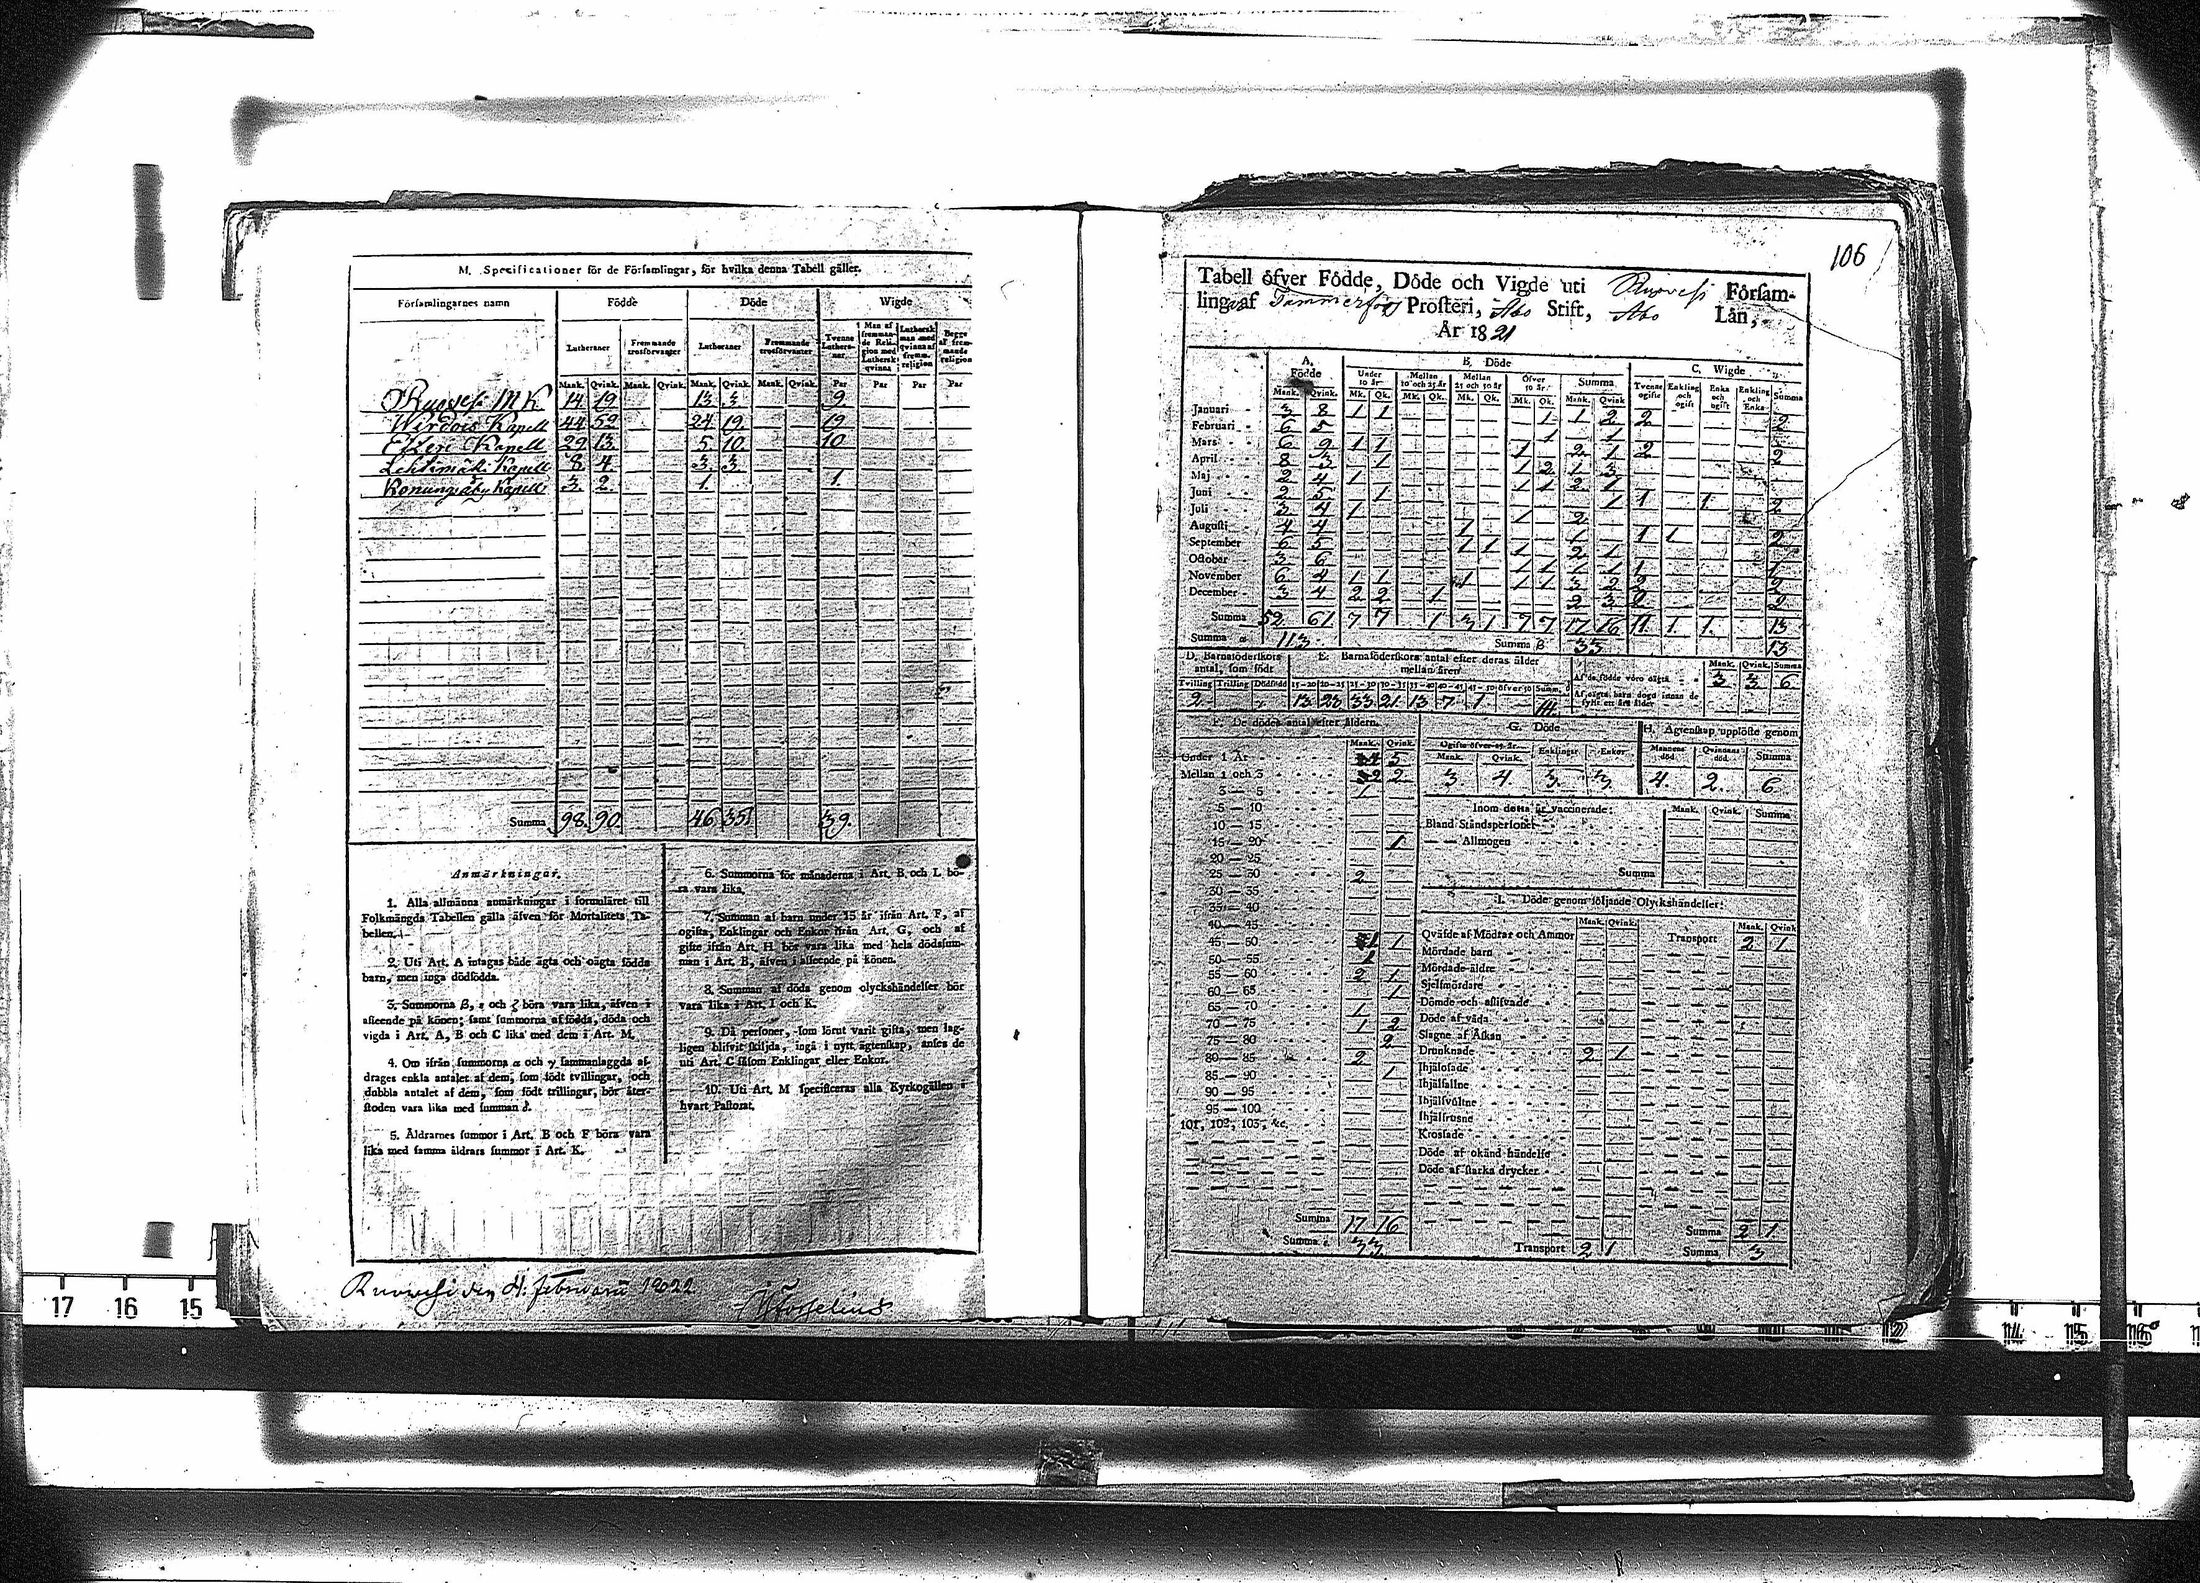 M. Specificationer för de Församlingar, för hvilka denna Tabell gäller.
Församlingarnes namn Födde Döde Wigde
Lutheraner Fremmande trosförvanter Lutheraner Fremmande trosförvanter Tvenne Lutheraner Man af fremmande Religion med Luthersk qvinna Luthersk man med qvinna af fremm. religion Begge af fremmande religion
Mank. Qvink. Mank. Qvink. Mank. Qvink. Mank. Qvink. Par Par Par Par
Ruovesi MK 14 19 13 3 9
Wirdois Kapell 44 52 24 19 19
Etzeri Kapell 29 13 5 10 10
Lehtimäki Kapell 8 4 3 3
Konungsåby Kapell 3 2 1 1
Summa 98 90 46 35 39
Anmärkningar.
1. Alla allmänna anmärkningar i formuläret till
Folkmängds Tabellen gälla äfven för Mortalitets Ta-
bellen.
2. Uti Art. A intagas både ägta och oägta födda
barn, men inga dödfödda.
3. Summorna β, ε och ζ böra vara lika, äfven i
afseende på könen; samt summorna af födda, döda och
vigda i Art. A, B och C lika med dem i Art. M.
4. Om ifrån summorna α och γ sammanlaggda af-
drages enkla antalet af dem, som födt tvillingar, och
dubbla antalet af dem, som födt trillingar, bör åter-
stoden vara lika med summan δ.
5. Åldrarnes summor i Art. B och F böra vara
lika med samma åldrars summor i Art. K.
6. Summorna för månaderna i Art. B och L bö-
ra vara lika.
7. Summan af barn under 15 år ifrån Art. F, af
ogifta, Enklingar och Enkor ifrån Art. G, och af
gifte ifrån Art. H bör vara lika med hela dödssum-
man i Art. B, äfven i afseende på könen.
8. Summan af döda genom olyckshändelser bör
vara lika i Art. I och K.
9. Då personer, som förut varit gifta, men lag-
ligen blifvit skiljda, ingå i nytt ägtenskap, anses de
uti Art. C såsom Enklingar eller Enkor.
10. Uti Art. M specificeras alla Kyrkogällen i
hvart Pastorat.
Ruovesi den 4. Februarii 1822
106
Tabell öfver Födde, Döde och Vigde uti Ruovesi Försam-
ling af Tammerfors Prosteri, Åbo Stift, Åbo Län,
År 1821
A. Födde B. Döde C. Wigde
Under 10 år Mellan 10 och 25 år Mellan 25 och 50 år Öfver 50 år Summa Tvenne ogifte Enkling och ogift Enka och ogift Enkling och Enka Summa
Mank. Qvink. Mk. Qk. Mk. Qk. Mk. Qk. Mk. Qk. Mank. Qvink.
Januari 3 8 1 1
Februari 6 5
Mars 6 9 1 1
April 8 3 1
Maj 2 4 1
Juni 2 5 1
Juli 3 4 1
Augusti 4 4
September 6 5
October 3 6
November 6 4 1 1
December 3 4 2 2 1
Summa 52 61 7 7 1 3 1 7 7 17 16 11 1 1 13
Summa α 113 Summa β 33 13
D. Barnaföderskors antal, som födt E. Barnaföderskors antal efter deras ålder mellan åren
Mank. Qvink. Summa
Af de födde voro oägta 3 3 6
Tvilling Trilling Dödfödd 15–20 20–25 25–30 30–35 35–40 40–45 45–50 öfver 50 Summ.
Af oägta barn dogo innan de fyllt ett års ålder
2 13 23 33 21 13 7 1
F. De dödes antal efter åldern. G. Döde H. Ägtenskap upplöste genom
Mank. Qvink. Ogifte öfver 15 år Enklingar Enkor Mannens död Qvinnans död Summa
Mank. Qvink.
Under 1 År 4 5
Mellan 1 och 3 2 2
3 4 3 3 4 2 6
3 — 5 1
5 — 10
10 — 15
15 — 20 1
20 — 25
25 — 30 2
30 — 35
35 — 40
40 — 45
45 — 50 1 1
50 — 55 1
55 — 60 2 1
60 — 65 1
65 — 70 1
70 — 75 1 2
75 — 80 2
80 — 85 2
85 — 90 1
90 — 95
95 — 100
101, 102, 103, &c.
Summa 17 16
Summa ε 33
Inom detta år vaccinerade: Mank. Qvink. Summa
Bland Ståndspersoner
— — Allmogen
Summa
I. Döde genom följande Olyckshändelser:
Mank. Qvink. Mank. Qvink.
Qväfde af Mödrar och Ammor Transport 2 1
Mördade barn
Mördade äldre
Sjelfmördare
Dömde och aflifvade
Döde af våda
Slagne af Åskan
Drunknade 2 1
Ihjälosade
Ihjälfallne
Ihjälsvultne
Ihjälfrusne
Krossade
Döde af okänd händelse
Döde af starka drycker
Summa 2 1
Transport 2 1 Summa 3
17 16 15
12 14 15 16